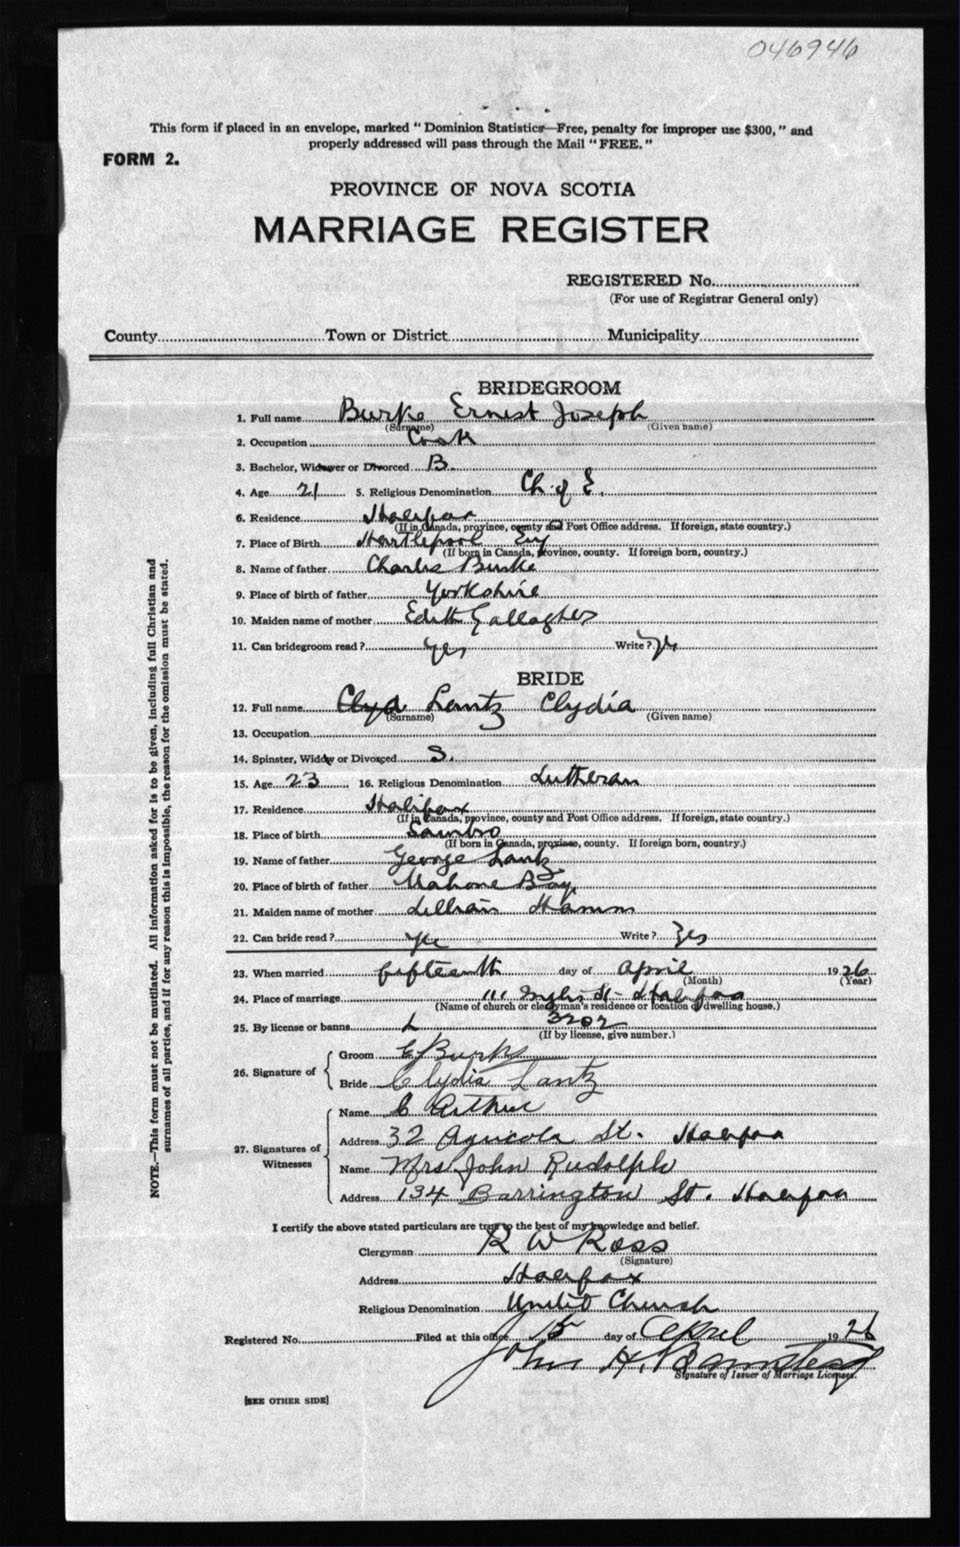 046946
This form if placed in an envelope, marked "Dominion Statistics—Free, penalty for improper use $300," and
properly addressed will pass through the Mail "FREE."
FORM 2.
PROVINCE OF NOVA SCOTIA
MARRIAGE REGISTER
REGISTERED No.
(For use of Registrar General only)
County Town or District Municipality
BRIDEGROOM
1. Full name Burke Ernest Joseph
(Surname) (Given name)
2. Occupation Cook
3. Bachelor, Widower or Divorced B.
4. Age 21 5. Religious Denomination Ch. of E.
6. Residence Halifax
(If in Canada, province, county and Post Office address. If foreign, state country.)
7. Place of Birth Hartlepool Eng
(If born in Canada, province, county. If foreign born, country.)
8. Name of father Charles Burke
9. Place of birth of father Yorkshire
10. Maiden name of mother Edith Gallagher
11. Can bridegroom read? Yes Write? Yes
BRIDE
12. Full name Clyd Lantz Clydia
(Surname) (Given name)
13. Occupation
14. Spinster, Widow or Divorced S.
15. Age 23 16. Religious Denomination Lutheran
17. Residence Halifax
(If in Canada, province, county and Post Office address. If foreign, state country.)
18. Place of birth Sambro
(If born in Canada, province, county. If foreign born, country.)
19. Name of father George Lantz
20. Place of birth of father Mahone Bay
21. Maiden name of mother Lillian Hamm
22. Can bride read? Yes Write? Yes
23. When married fifteenth day of April 1926
(Month) (Year)
24. Place of marriage 111 St- Halifax
(Name of church or clergyman's residence or location of dwelling house.)
25. By license or banns L 3202
(If by license, give number.)
26. Signature of
Groom E Burke
Bride Clydia Lantz
27. Signatures of Witnesses
Name C Arthur
Address 32 Agricola St. Halifax
Name Mrs John Rudolph
Address 134 Barrington St. Halifax
I certify the above stated particulars are true to the best of my knowledge and belief.
Clergyman R W Ross
(Signature)
Address Halifax
Religious Denomination United Church
Registered No. Filed at this office 15 day of April 1926
John H.
Signature of Issuer of Marriage Licenses.
[SEE OTHER SIDE]
NOTE.—This form must not be mutilated. All information asked for is to be given, including full Christian and
surnames of all parties, and if for any reason this is impossible, the reason for the omission must be stated.